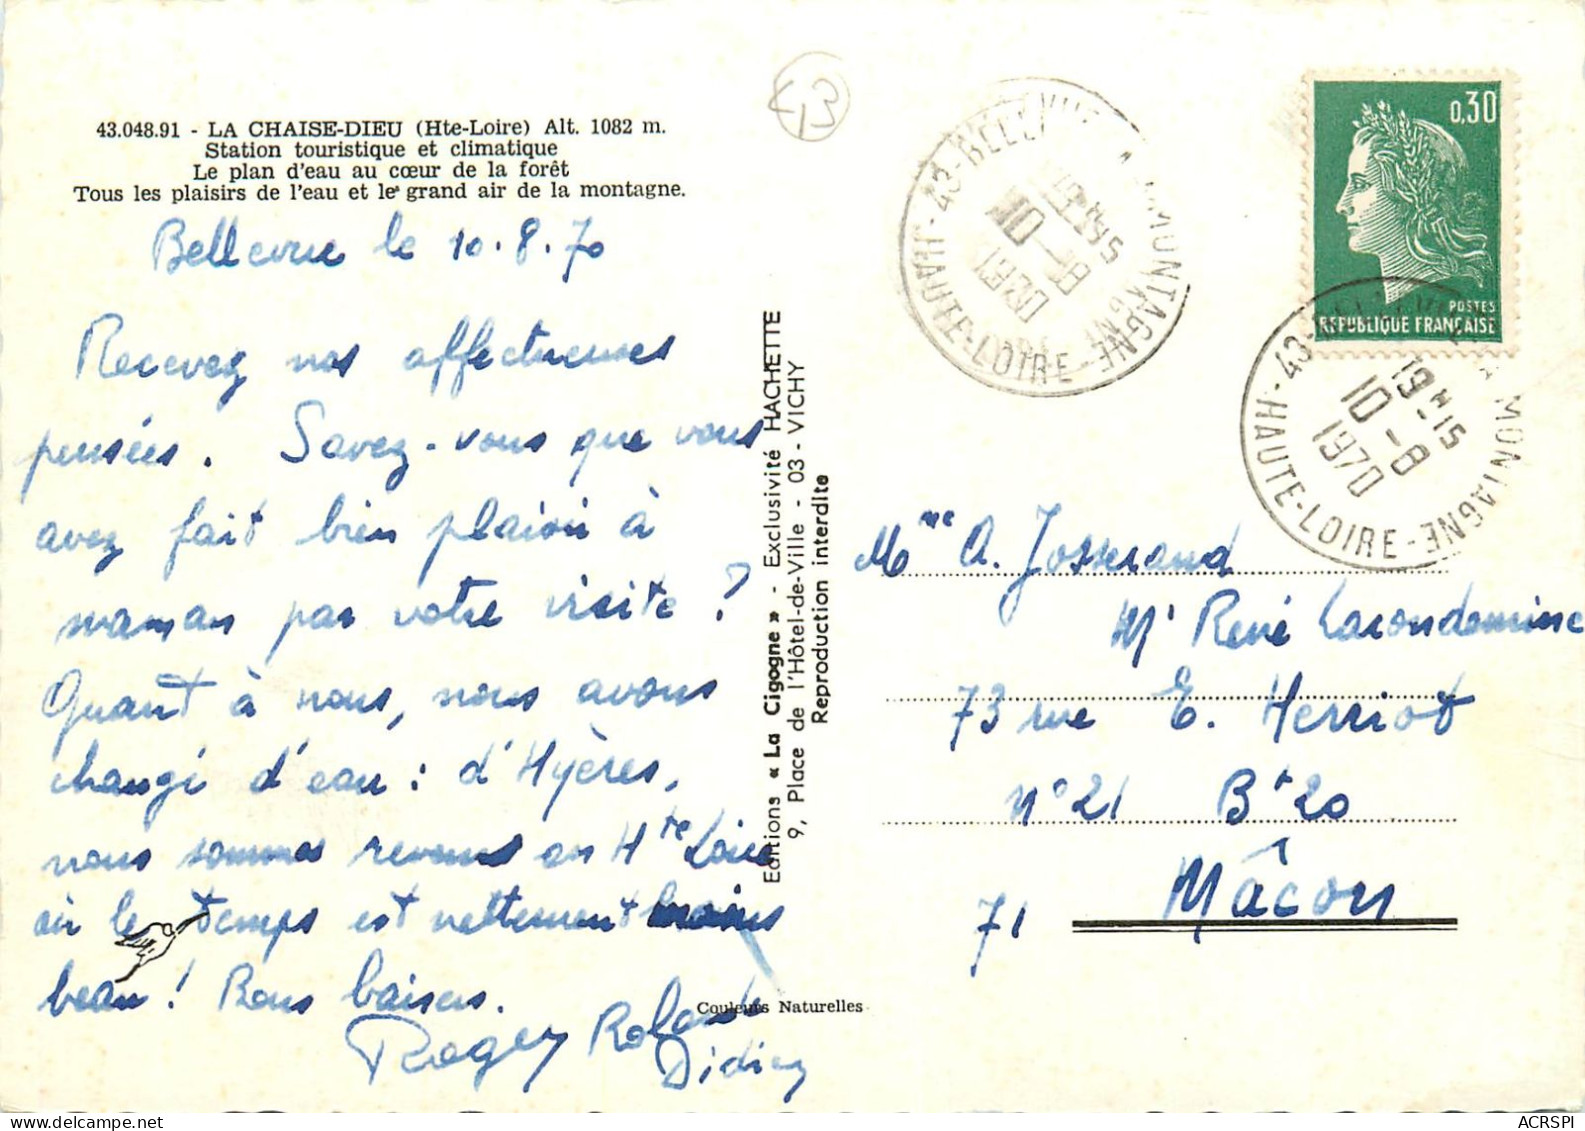 43
43.048.91 - LA CHAISE-DIEU (Hte-Loire) Alt. 1082 m.
Station touristique et climatique
Le plan d'eau au cœur de la forêt
Tous les plaisirs de l'eau et le grand air de la montagne.
Bellevue le 10.8.70
Recevez nos affectueuses
pensées. Savez-vous que vous
avez fait bien plaisir à
maman par votre visite ?
Quant à nous, nous avons
changé d'eau : d'Hyères,
nous sommes revenus en Hte Loire
où le temps est nettement moins
beau ! Bons baisers.
Roger Rolande
Didier
Editions « La Cigogne » - Exclusivité HACHETTE
9, Place de l'Hôtel-de-Ville - 03 - VICHY
Reproduction interdite
Couleurs Naturelles
43-BELLEVUE-LA-MONTAGNE
HAUTE-LOIRE
19H15
10-8
1970
0,30
POSTES
REPUBLIQUE FRANÇAISE
43-BELLEVUE-LA MONTAGNE
HAUTE-LOIRE
19H15
10-8
1970
Mme A. Josserand
Mr René Lacondemine
73 rue E. Herriot
N° 21 Bt 20
71 Mâcon
ACRSPI